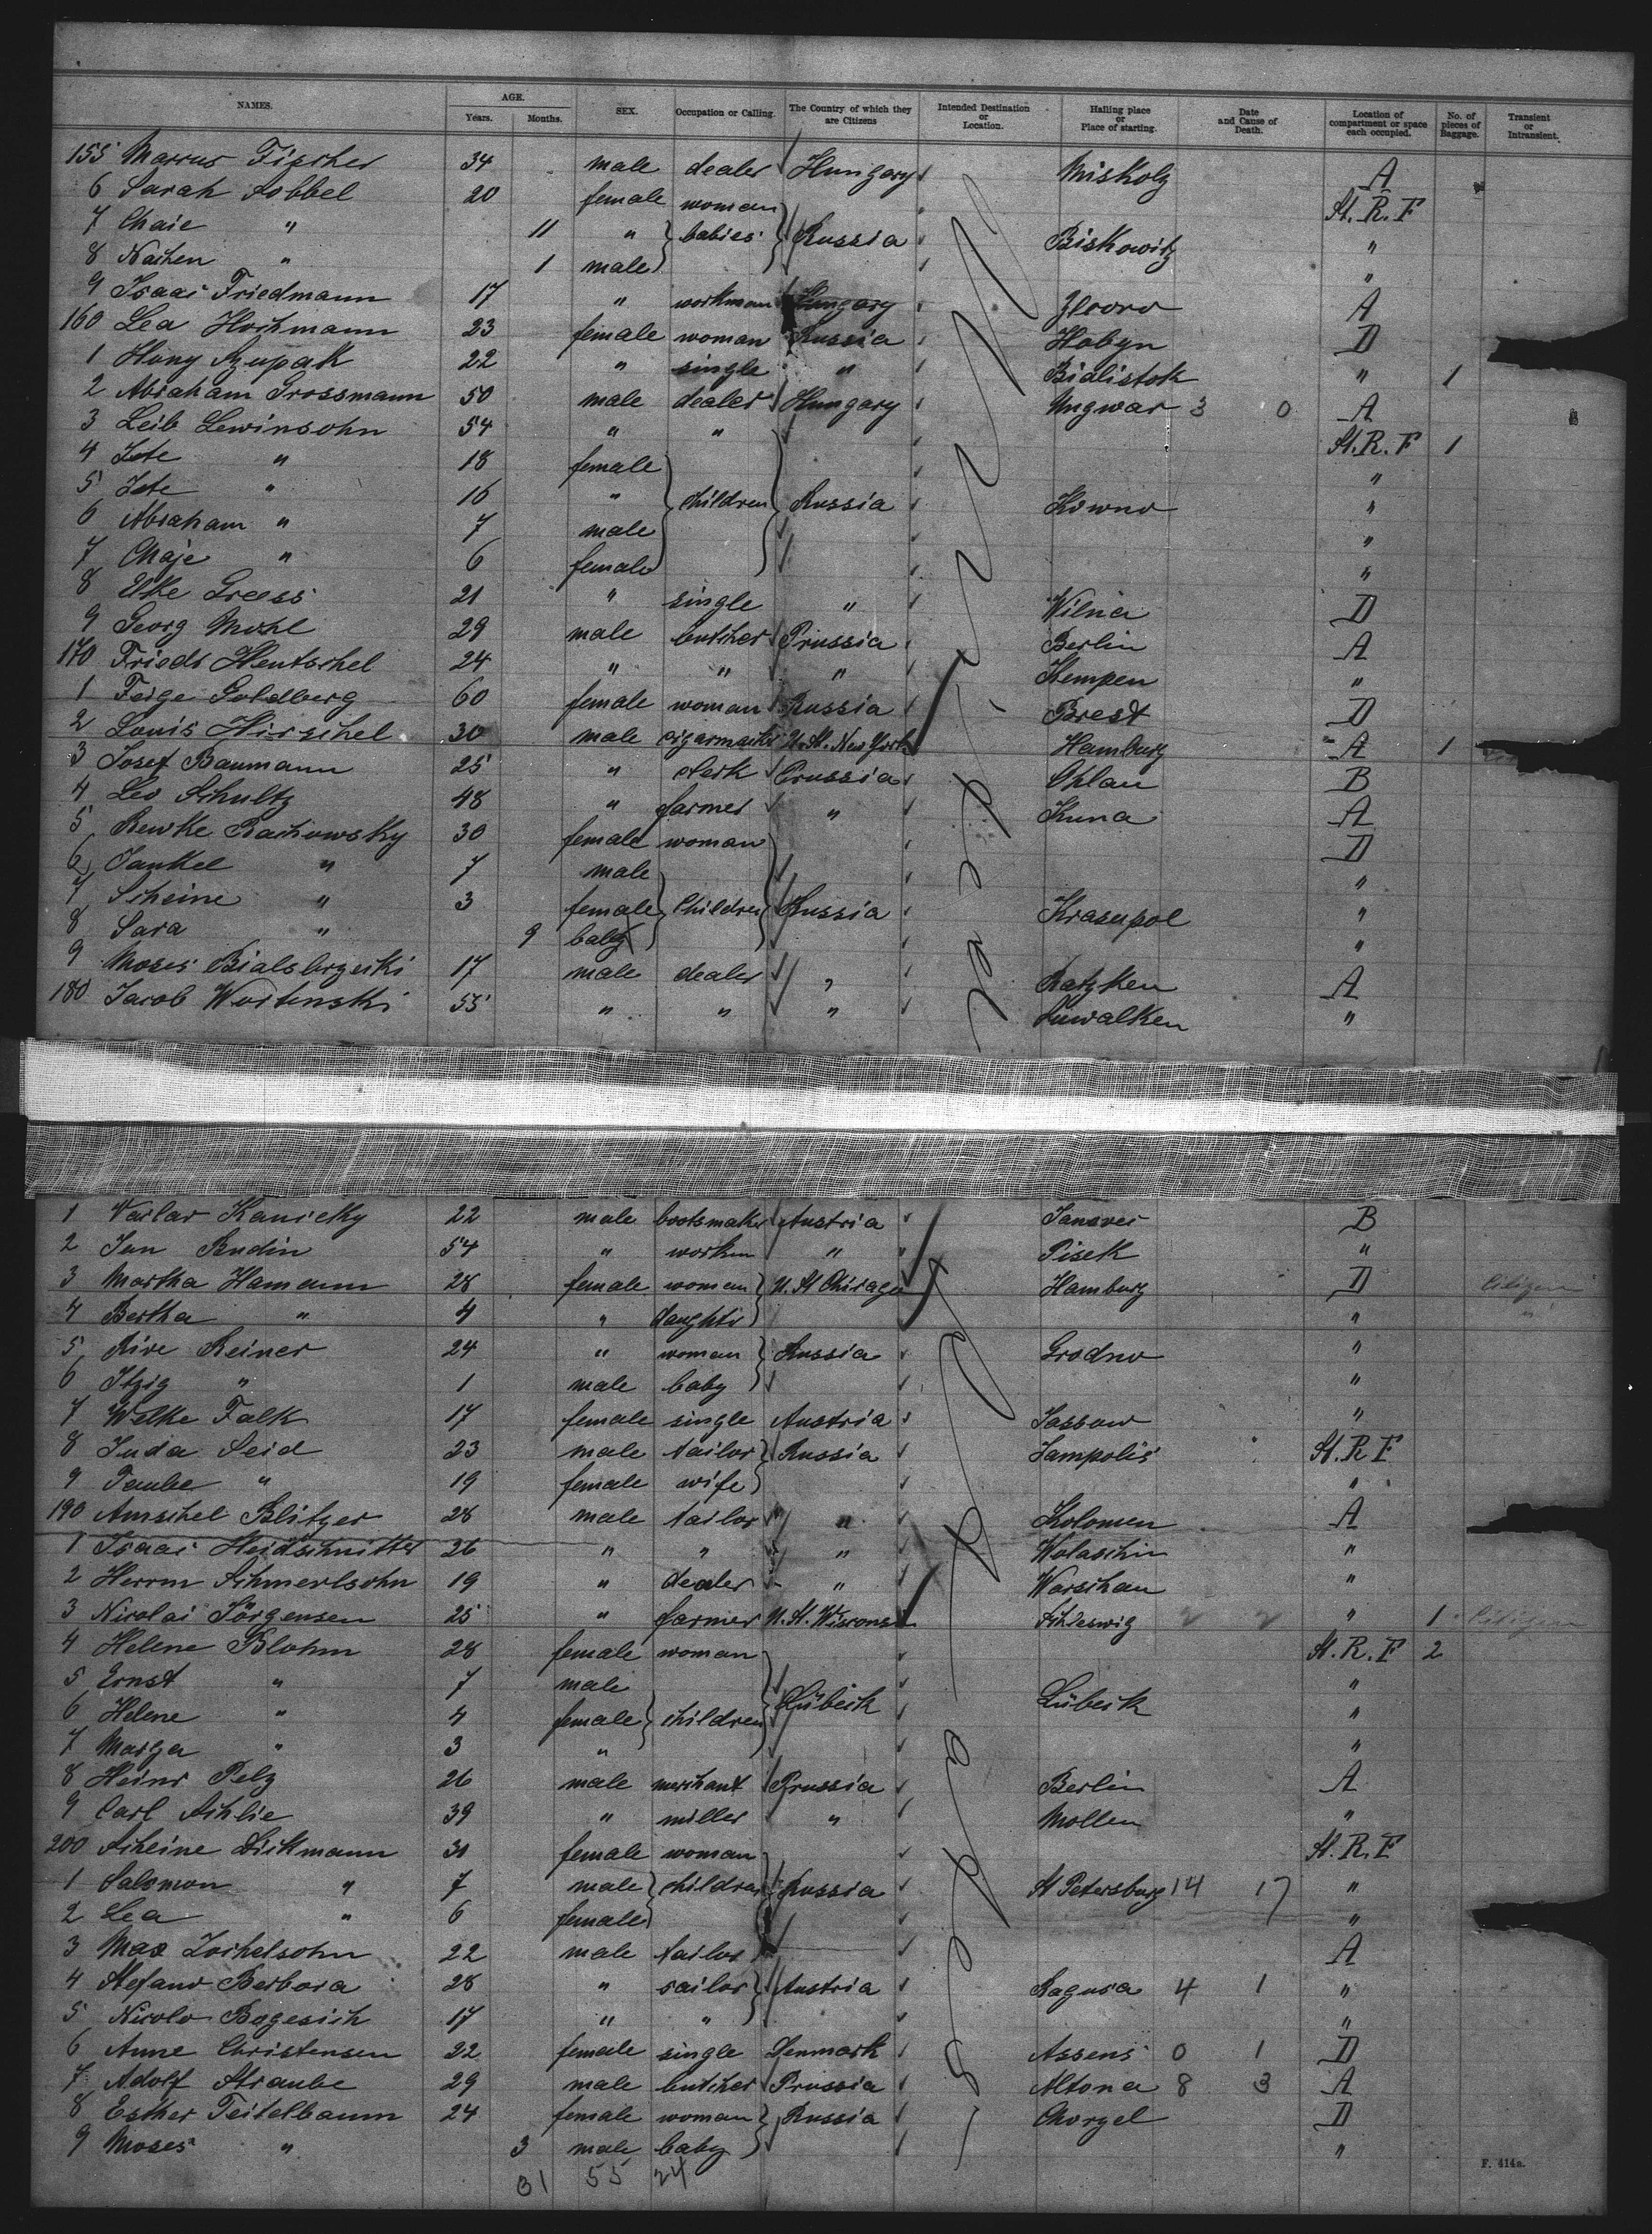 NAMES. AGE. Years. Months. SEX. Occupation or Calling. The Country of which they are Citizens Intended Destination or Location. Hailing place or Place of starting. Date and Cause of Death. Location of compartment or space each occupied. No. of pieces of Baggage. Transient or Intransient.
155 Marcus Fischer 34 male dealer Hungary Miskolz A
6 Sarah Sobbel 20 female woman St. R. F
7 Chaie " 11 " babies Russia Biskowitz "
8 Nachen " 1 male "
9 Isaac Friedmann 17 " workman Hungary A
160 Lea Hochmann 23 female woman Russia Hobyn D
1 Hany Szupak 22 " single " Bialistok " 1
2 Abraham Grossmann 50 male dealer Hungary Ungwar 3 0 A
3 Leib Lewinsohn 54 " " St. R. F 1
4 " 18 female "
5 " 16 " children Russia Kowno "
6 Abraham " 7 male "
7 Chaje " 6 female "
8 Elke 21 " single " Wilna D
9 Georg Mohl 29 male butcher Prussia Berlin A
170 Friedr Hentschel 24 " " " Kempen "
1 Feige Goldberg 60 female woman Russia Brest D
2 Louis Hirschel 30 male cigarmaker U. St. New York Hamburg A 1
3 Josef Baumann 25 " clerk Prussia Ohlau B
4 Leo Schultz 48 " farmer " Kuna A
5 Rewke Rachowsky 30 female woman D
6 Jankel " 7 male "
7 Scheine " 3 female Children Russia Krasupol "
8 Sara " 9 baby "
9 Moses 17 male dealer " Ratzken A
180 Jacob Wortinski 55 " " " Suwalken "
1 Vaclav Kanicky 22 male bootsmaker Austria B
2 Jan Rudin 54 " workm " Pisek "
3 Martha Hamann 28 female woman U. St Chicago Hamburg D Citizen
4 Bertha " 4 " daughtr " "
5 Rive Reiner 24 " woman Russia Grodno "
6 Itzig " 1 male baby "
7 Welke Falk 17 female single Austria Sassow "
8 Juda Seid 23 male tailor Russia Jampolis St. R F
9 Taube " 19 female wife "
190 Amschel Blitzer 28 male tailor " Kolomen A
1 Isaac Heidschnitter 26 " " " Wolaschin "
2 Herrm Schmerlsohn 19 " dealer " Warschau "
3 Nicolai Jörgensen 25 " farmer U. St. Wiscons Schleswig 2 2 " 1 Citizen
4 Helene Blohm 28 female woman St. R. F 2
5 Ernst " 7 male "
6 Helene " 4 female children Lübeck Lübeck "
7 Marga " 3 " "
8 Heinr Pelz 26 male merchant Prussia Berlin A
9 Carl Schlie 39 " miller " Mollen "
200 Scheine Dickmann 30 female woman St. R. F
1 Salomon " 7 male children Russia St Petersburg 14 17 "
2 Lea " 6 female "
3 Max Zochelsohn 22 male tailor A
4 Stefano Berbora 28 " sailor Austria Ragusa 4 1 "
5 Nicolo Bagesich 17 " " "
6 Anne Christensen 22 female single Denmark Assens 0 1 D
7 Adolf Straube 29 male butcher Prussia Altona 8 3 A
8 Esther Teitelbaum 24 female woman Russia Chorzel D
9 Moses " 3 male baby "
31 55 24
F. 414a.